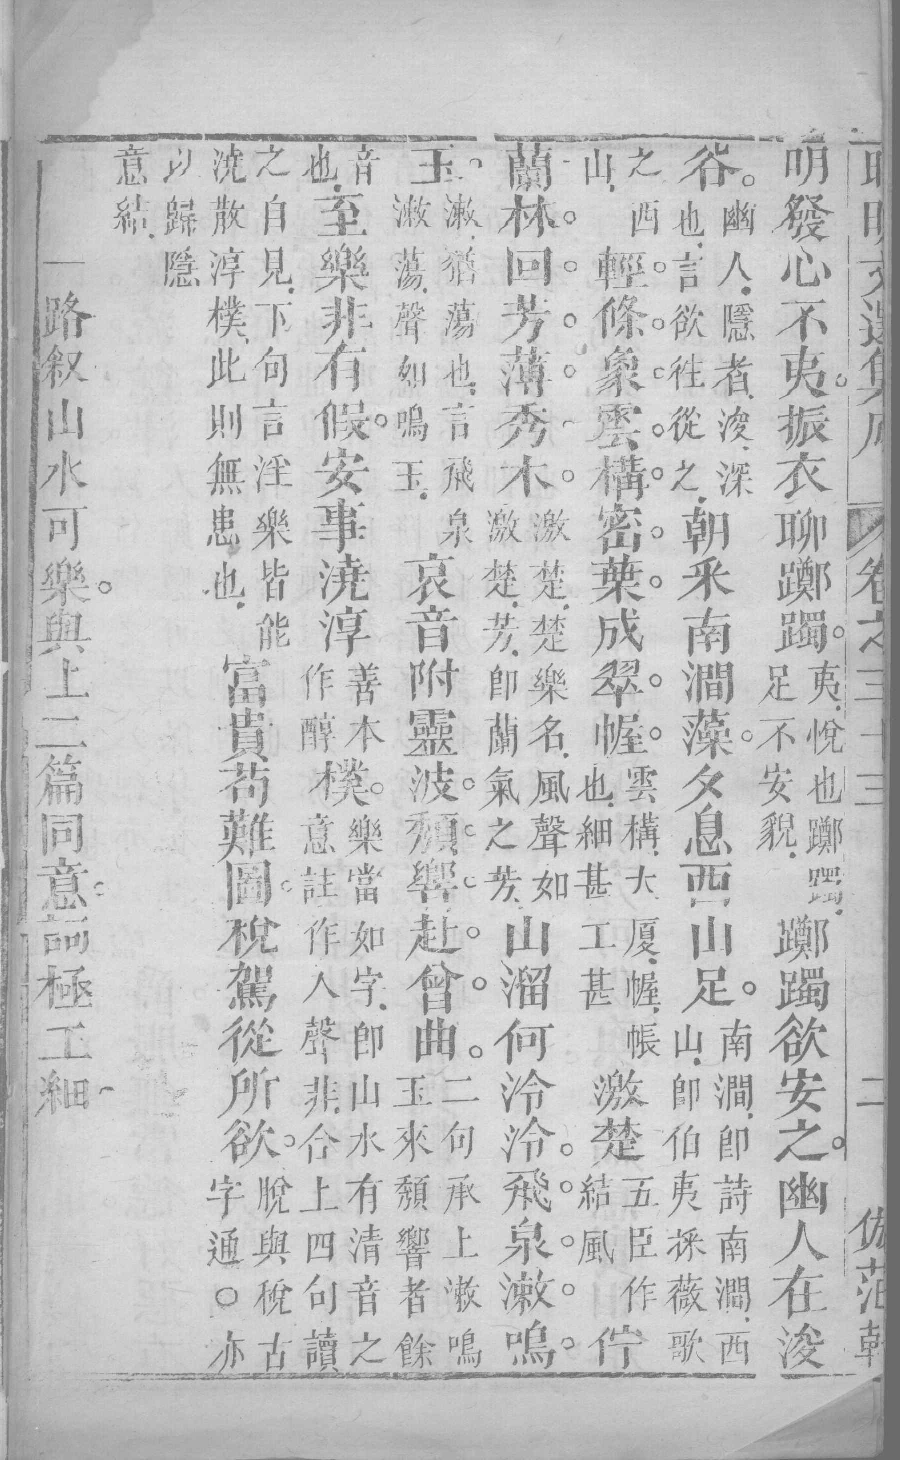 昭明文選集成 卷之三十三 二 倣范軒
明發心不夷。振衣聊躑躅。夷、悅也躑躅、足不安貌、躑躅欲安之。幽人在浚
谷。幽人、隱者、浚、深也、言欲往從之、朝采南澗藻。夕息西山足。南澗、卽詩南澗、西山、卽伯夷採薇歌
之西山、輕條象雲構。密葉成翠幄。雲構、大厦、幄、帳也、細甚工甚激楚五臣作結風佇
蘭林。回芳薄秀木。激楚、楚樂名、風聲如激楚、芳、卽蘭氣之芳、山溜何泠泠。飛泉漱鳴
玉。漱、猶蕩也、言飛泉漱蕩、聲如鳴玉、哀音附靈波。頹響赴曾曲。二句承上漱鳴玉來頹響者餘
音也、至樂非有假。安事澆淳善本作醇樸。樂當如字、卽山水有清音之意註作入聲非、合上四句讀
之自見、下句言淫樂皆能澆散淳樸、此則無患也、富貴苟難圖。稅駕從所欲。脫與稅古字通○亦
以歸隱意結、
一路叙山水可樂。與上二篇同意。詞極工細